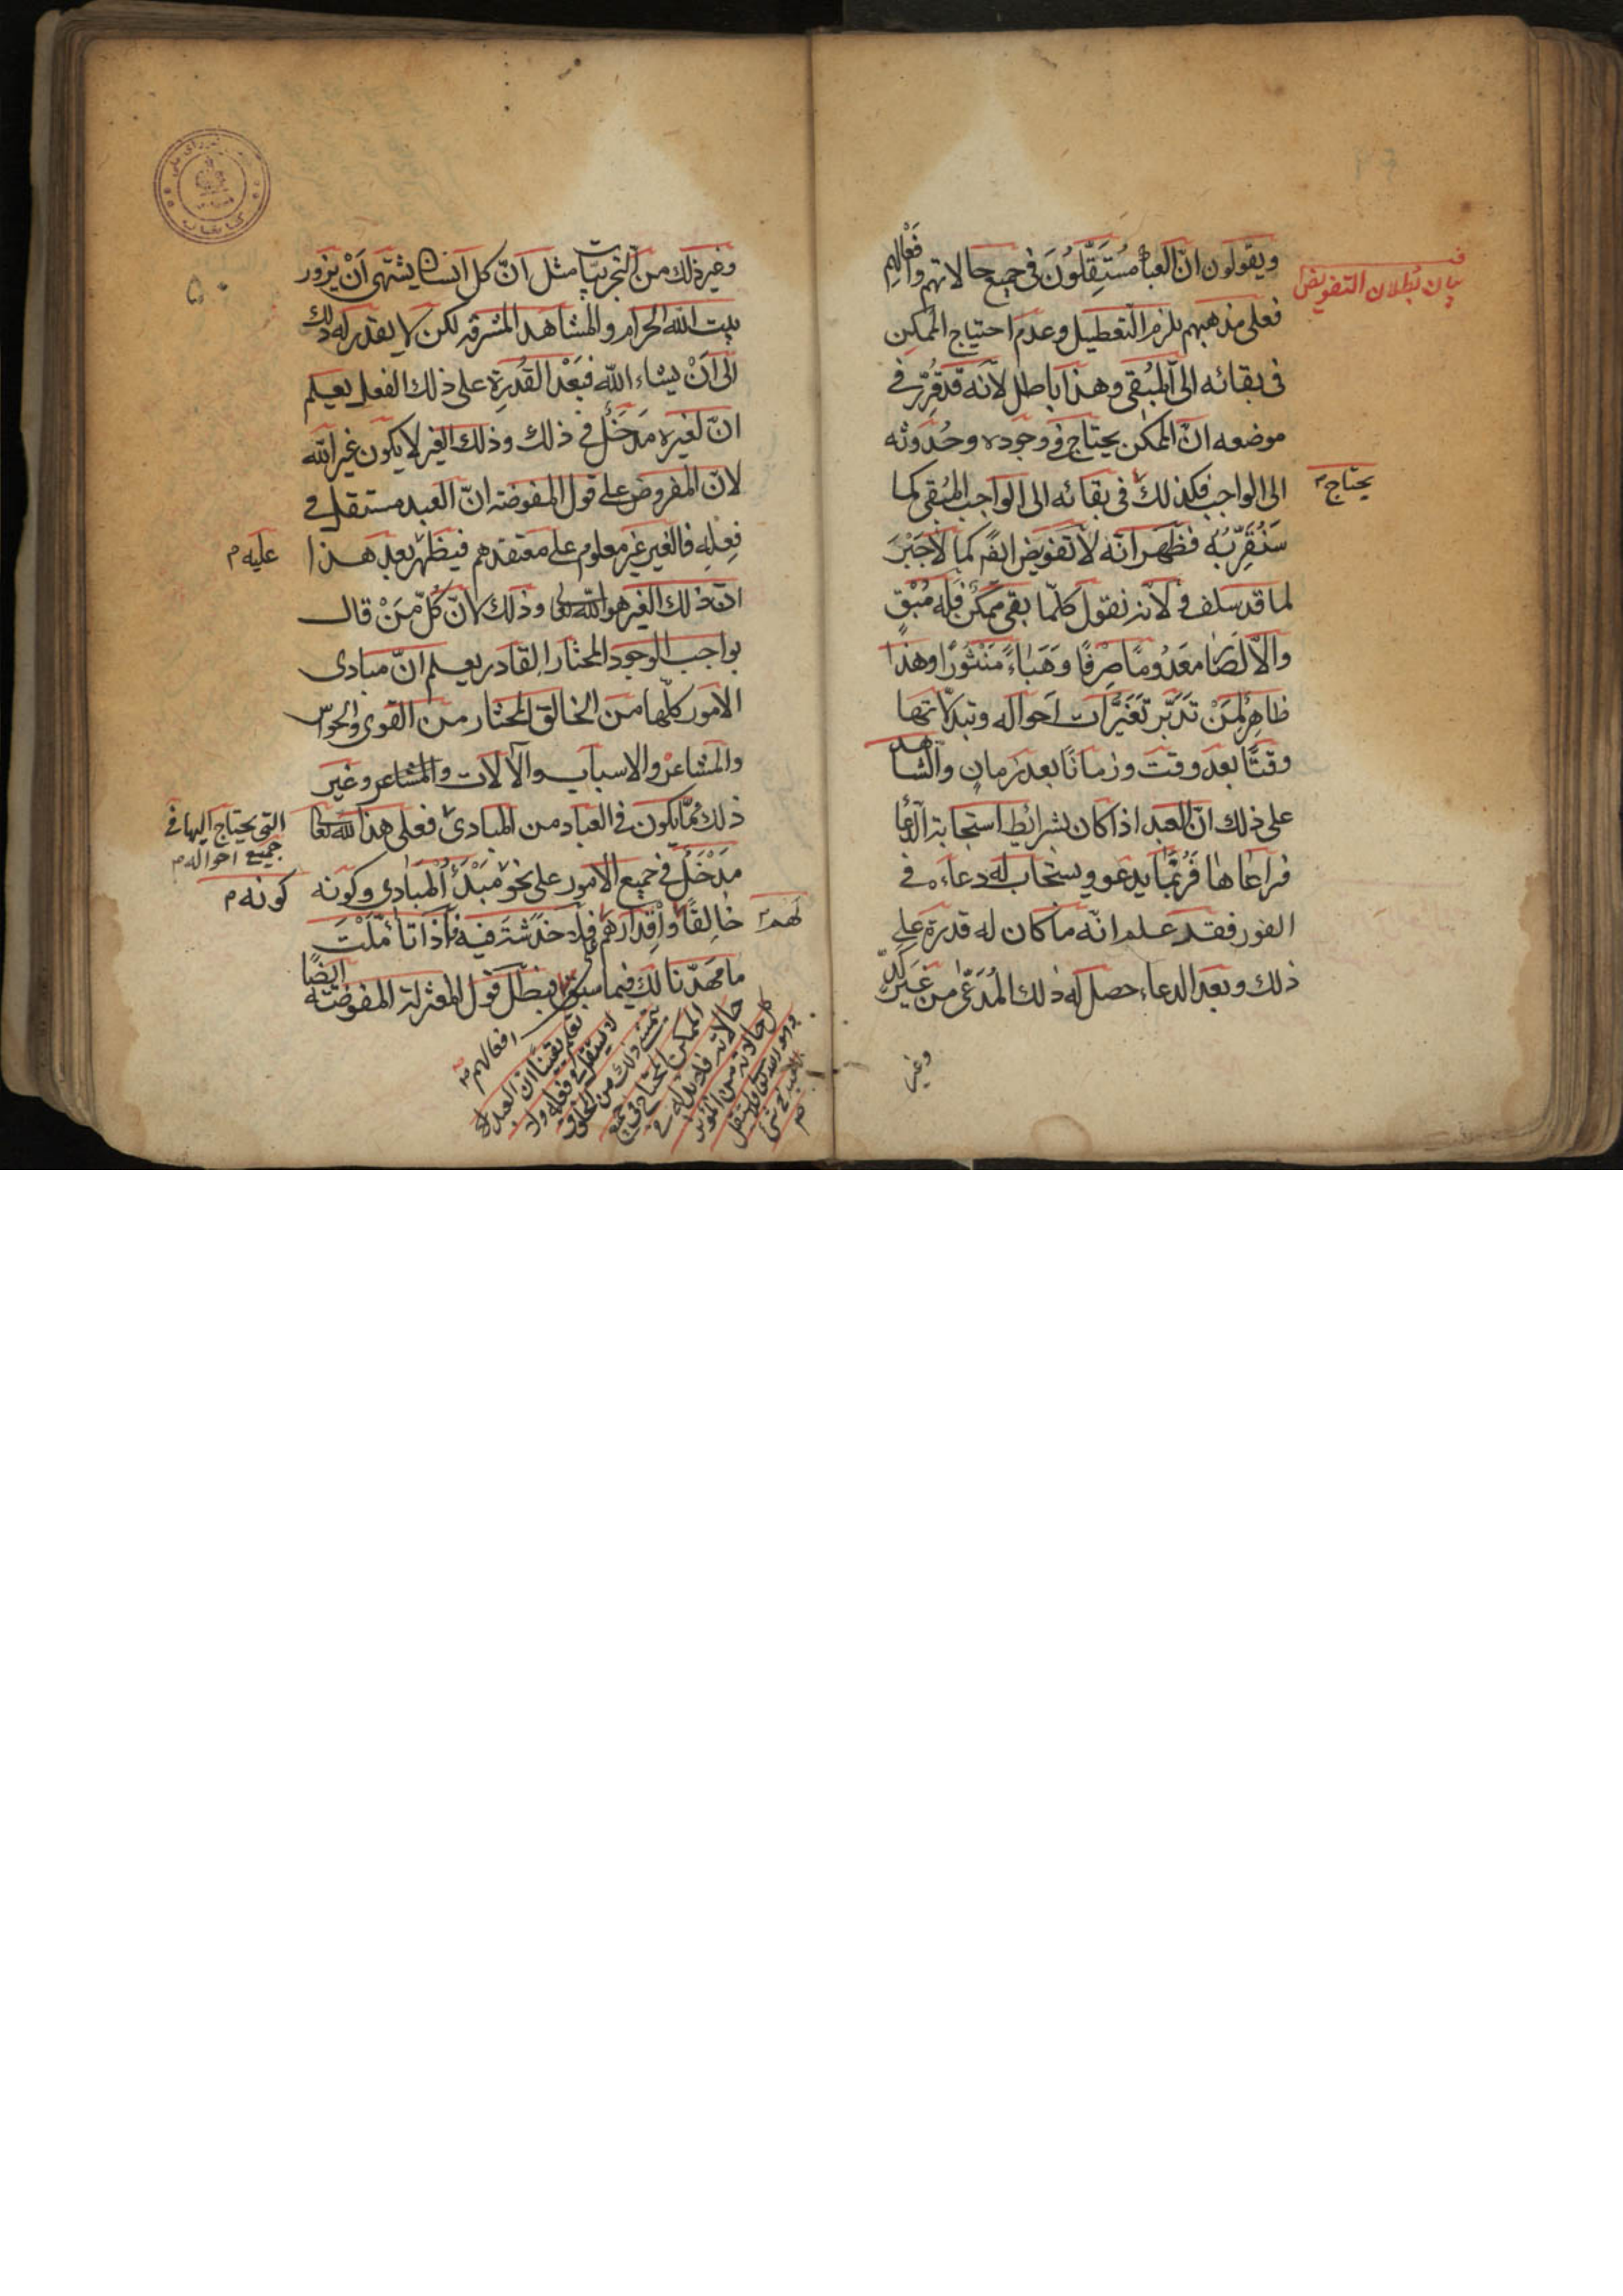 ويقولون انّ العباد مُستَقِلّونَ في جميع حالاتهم وافعالهم
فعلى مذهبهم يلزم التعطيل وعدم احتياج الممكن
في بقائه الى المُبقى وهذا باطل لانّه قد قُرِّر في
موضعه انّ الممكن يحتاج في وجوده وحُدُوثه
الى الواجب فكذلك في بقائه الى الواجب المُبقى كما
سَنُقَرِّبُه فظَهَر انّه لا تفويض ايضًا كما لا جَبْرَ
لما قد سلف في لانّا نقول كلّما بقى ممكن فله مُبْقٍ
والّا لَصَار معدُومًا صِرفًا وَهَباءً مَنْثُورًا وهذا
ظاهِرٌ لِمَنْ تَدَبَّر تَغَيُّرات اَحواله وتبدلاتها
وقتًا بعد وقت وزمانًا بعد زمانٍ والشاهد
على ذلك انّ العبد اذا كان بشرائط استجابة الدعا
فراعاها فَرُبَّمَا يدعو ويستجاب له دعاءه في
الفور فقد علم انّه ما كان له قدرة على
ذلك وبعد الدعاء حصل له ذلك المُدَّعى من غير كدّ
وغير
في
بيان بُطلان التفويض
يحتاج
وغير ذلك من التجربيّات مثل انّ كل انسان يشتهى اَنْ يزور
بيت الله الحرام والمشاهد المشرفه لكن لا يقدر له ذلك
الى اَنْ يشاء الله فبَعْد القُدرةِ على ذلك الفعل يعلم
انّ لغيره مَدخَلٌ في ذلك وذلك الغير لا يكون غير الله
لانّ المفروض على قول المفوضه انّ العبد مستقل في
فِعلِهِ فالغير غير معلوم على معتقدهم فيظهر بعد هذا
انّ ذلك الغير هو الله تعالى وذلك لانّ كُلّ مَنْ قال
بواجب الوجود المختار القادر يعلم انّ مبادى
الامور كلّها من الخالق المختار من القوى والحواس
والمشاعر والاسباب والآلات والمشاعر وغير
ذلك ممّا يكون في العباد من المبادى فعلى هذا لله تعالى
مَدْخَلٌ في جميع الامور على نحو مَبْدَأ المبادى وكونه
خالِقًا واِقدارهم فلا خدشة فيه فاذا تأمّلْتَ
ما مهدّنا لك فيما سبق فبطل قول المعتزلة المفوضة ايضًا
عليه م
التي يحتاج اليها في
جميع احواله م
كونه م
لهم
افعالهم
تعلم يقينًا انّ العبد
لا يستقل في فعله
يتمنّى ذلك من الخلق
الممكن المحتاج في جميع
حالاته فلابدّ له
كل حالاته من المؤثر
۵۰